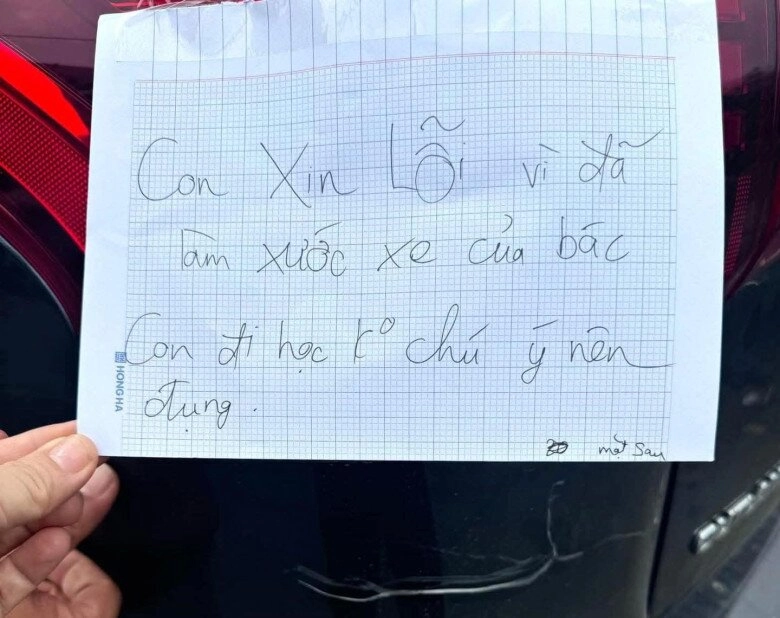 Con Xin Lỗi vì đã
làm xước xe của bác
Con đi học kº chú ý nên
đụng.
mặt sau
HONG HA